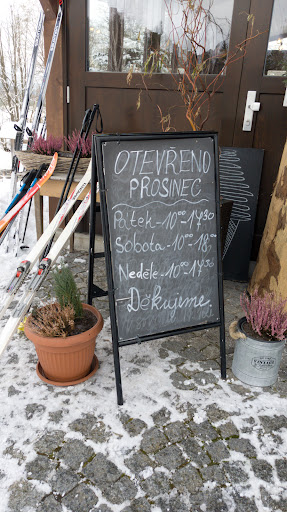 OTEVŘENO
PROSINEC
Pátek - 10⁰⁰ - 17³⁰
Sobota - 10⁰⁰ - 18⁰⁰
Neděle - 10⁰⁰ - 17³⁰
Děkujeme